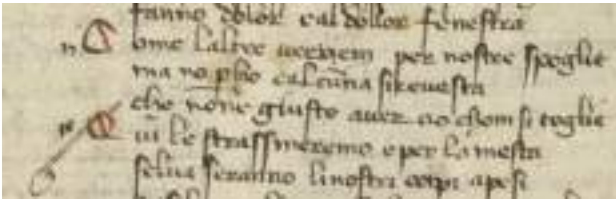 fanno dolor e al dollor fenestra
Come laltre uerrem per nostre spoglie
ma no p̱ho cal cuna sireuesta
che none giusto auer cio chom si toglie
Qui le strassineremo e per la mesta
selua seranno li nostri corpi apesi